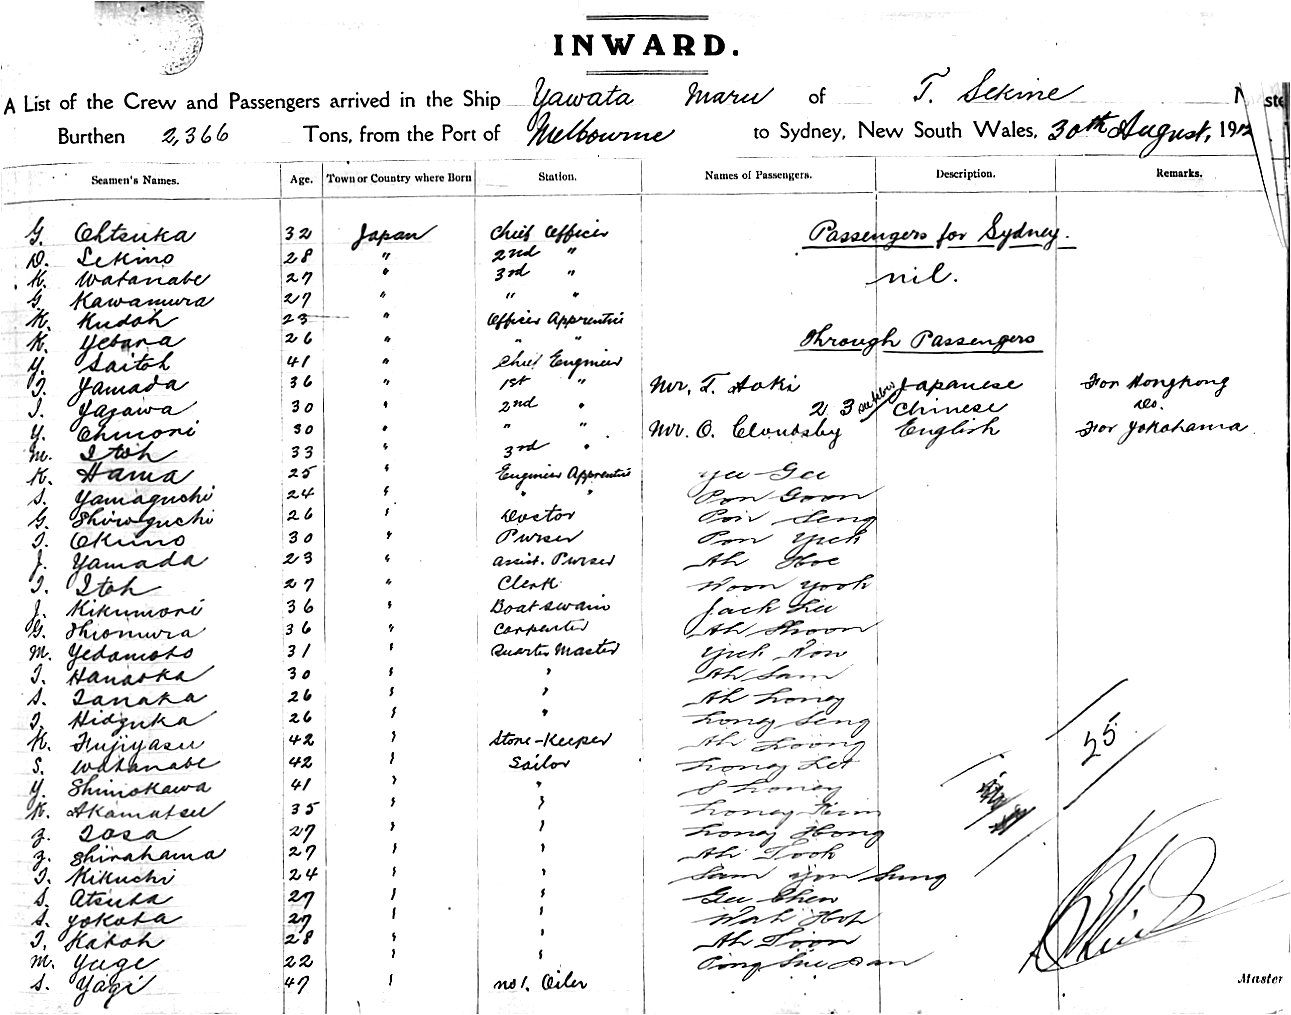 INWARD.
A List of the Crew and Passengers arrived in the Ship Yawata Maru of T. Sekine
Burthen 2,366 Tons, from the Port of Melbourne to Sydney, New South Wales, 30th August, 19
Seamen's Names. Age. Town or Country where Born Station. Names of Passengers. Description. Remarks.
G. Ohtsuka 32 Japan Chief Officer Passengers for Sydney.
D. Sekino 28 " 2nd "
K. Watanabe 27 " 3rd " nil.
G. Kawamura 27 " " "
K. Kudoh 23 " Officer Apprentice
K. Yebara 26 " " " Through Passengers
Y. Saitoh 41 " Chief Engineer
T. Yamada 36 " 1st " Mr. T. Aoki Japanese For Hongkong
T. Yazawa 30 " 2nd " 23 see below Chinese Do.
Y. Ohmori 30 " " " Mr. O. Cloudsby English For Yokohama
M. Itoh 33 " 3rd "
K. Hama 25 " Engineer Apprentice Yee Gee
S. Yamaguchi 24 " " " Pon Goon
G. 26 " Doctor Pon Seng
T. Okuno 30 " Purser Pon Yick
J. Yamada 23 " Assist. Purser Ah Hoe
T. Itoh 27 " Clerk Woon Yook
J. Kikumori 36 " Boatswain Jack Lee
G. Shiomura 36 " Carpenter Ah Shoon
M. Yedamoto 31 " Quarter Master Yick Kow
T. Hanaoka 30 " " Ah Sam
S. Tanaka 26 " " Ah Loney
T. Hidzuka 26 " " Loney Seng
K. Fujiyasu 42 " Store-Keeper Ah Loong
S. Watanabe 42 " Sailor Loney Lee 25
Y. Shimokawa 41 " " S Loney
K. Akamatsu 35 " " Loney Kim
Z. Tosa 27 " " Loney Hong
Z. Shirahama 27 " " Ah Took
T. Kikuchi 24 " " Sam Yow Sung
S. Atsuta 27 " " Gee Chew
S. Yokota 27 " " Wah Hop
T. Katoh 28 " " Ah Soon
M. Yuge 22 " "
S. Yagi 47 " No 1. Oiler
Master